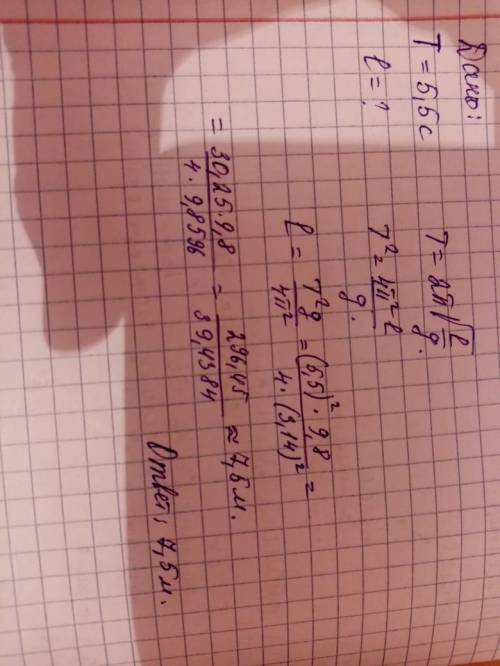 Дано:
T = 5,5 с
l = ?
T = 2π√(l/g).
T² = 4π²l/g.
l = T²g/4π² = (5,5)² · 9,8 / 4 · (3,14)² =
= 30,25 · 9,8 / 4 · 9,8596 = 296,45 / 39,4384 ≈ 7,5 м.
Ответ: 7,5 м.